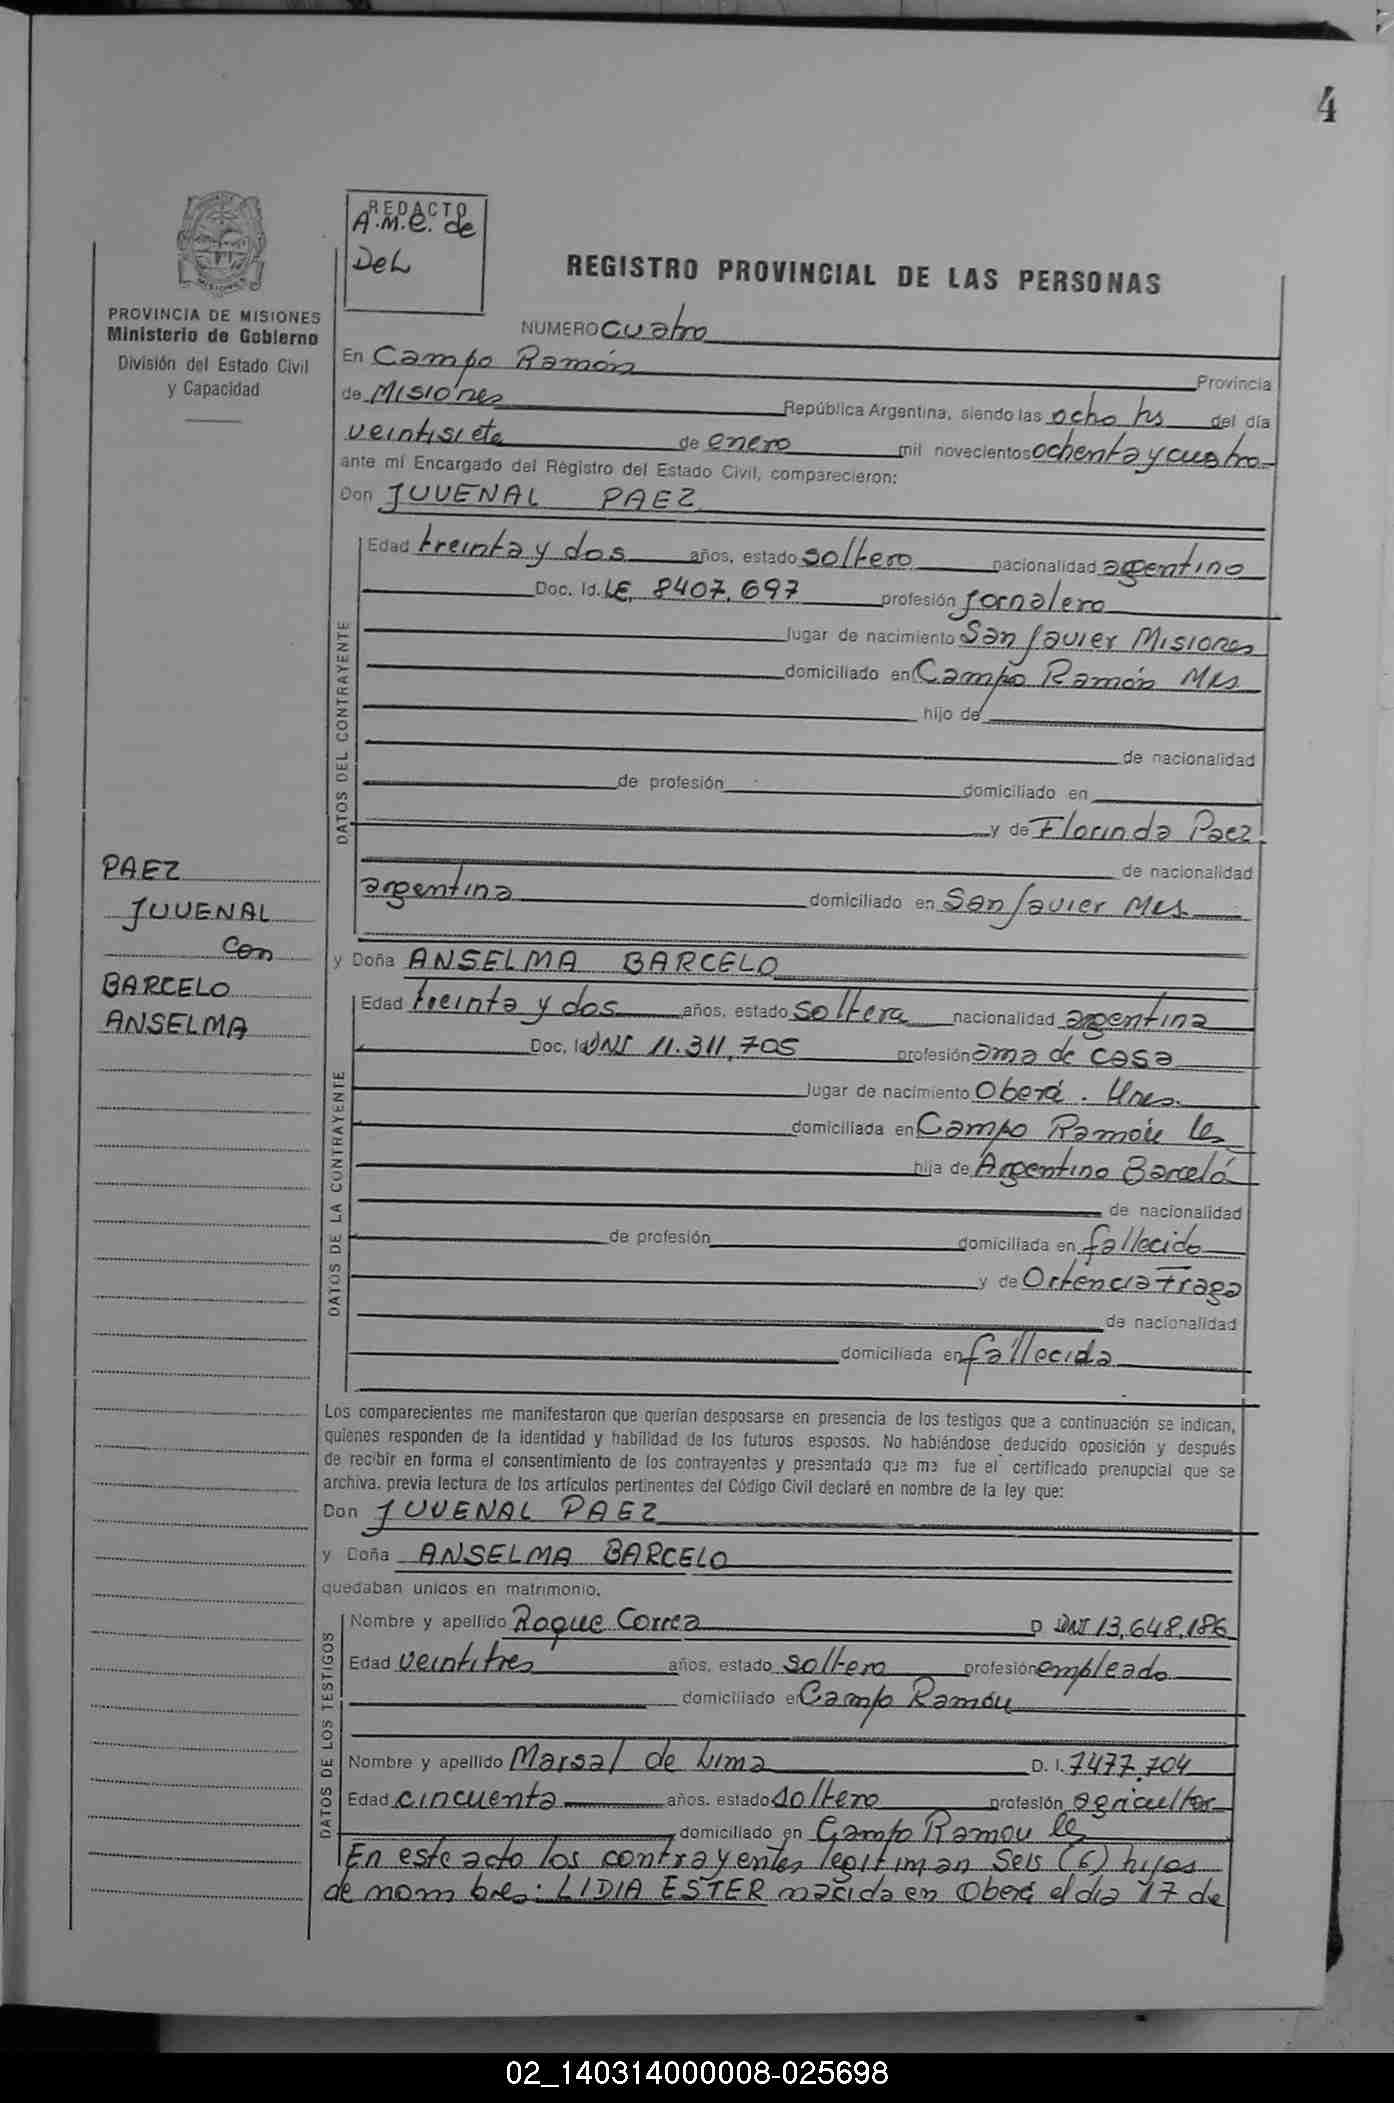 4
REDACTO
A.M.C. de
DeL
PROVINCIA DE MISIONES
Ministerio de Gobierno
División del Estado Civil
y Capacidad
REGISTRO PROVINCIAL DE LAS PERSONAS
NUMERO cuatro
En Campo Ramón Provincia
de Misiones República Argentina, siendo las ocho hs del día
veintisiete de enero mil novecientos ochenta y cuatro
ante mí Encargado del Registro del Estado Civil, comparecieron:
Don JUVENAL PAEZ
DATOS DEL CONTRAYENTE
Edad treinta y dos años, estado soltero nacionalidad argentino
Doc. Id. LE. 8407.697 profesión jornalero
lugar de nacimiento San Javier Misiones
domiciliado en Campo Ramón Mes
hijo de
de nacionalidad
de profesión domiciliado en
y de Florinda Paez
de nacionalidad
argentina domiciliado en San Javier Mes
PAEZ
JUVENAL
con
BARCELO
ANSELMA
y Doña ANSELMA BARCELO
DATOS DE LA CONTRAYENTE
Edad treinta y dos años, estado soltera nacionalidad argentina
Doc. Id DNI 11.311.705 profesión ama de casa
lugar de nacimiento Oberá.
domiciliada en Campo Ramón
hija de Argentino Barceló
de nacionalidad
de profesión domiciliada en fallecido
y de Ortencia Fraga
de nacionalidad
domiciliada en fallecida
Los comparecientes me manifestaron que querían desposarse en presencia de los testigos que a continuación se indican,
quienes responden de la identidad y habilidad de los futuros esposos. No habiéndose deducido oposición y después
de recibir en forma el consentimiento de los contrayentes y presentado que me fue el certificado prenupcial que se
archiva, previa lectura de los artículos pertinentes del Código Civil declaré en nombre de la ley que:
Don JUVENAL PAEZ
y Doña ANSELMA BARCELO
quedaban unidos en matrimonio.
DATOS DE LOS TESTIGOS
Nombre y apellido Roque Correa D DNI 13.648.186
Edad veintitres años, estado soltero profesión empleado
domiciliado en Campo Ramón
Nombre y apellido Marsal de Lima D. I. 7477.704
Edad cincuenta años, estado soltero profesión agricultor
domiciliado en Campo Ramon
En este acto los contrayentes legitiman seis (6) hijos
de nombres: LIDIA ESTER nacida en Oberá el dia 17 de
02_140314000008-025698